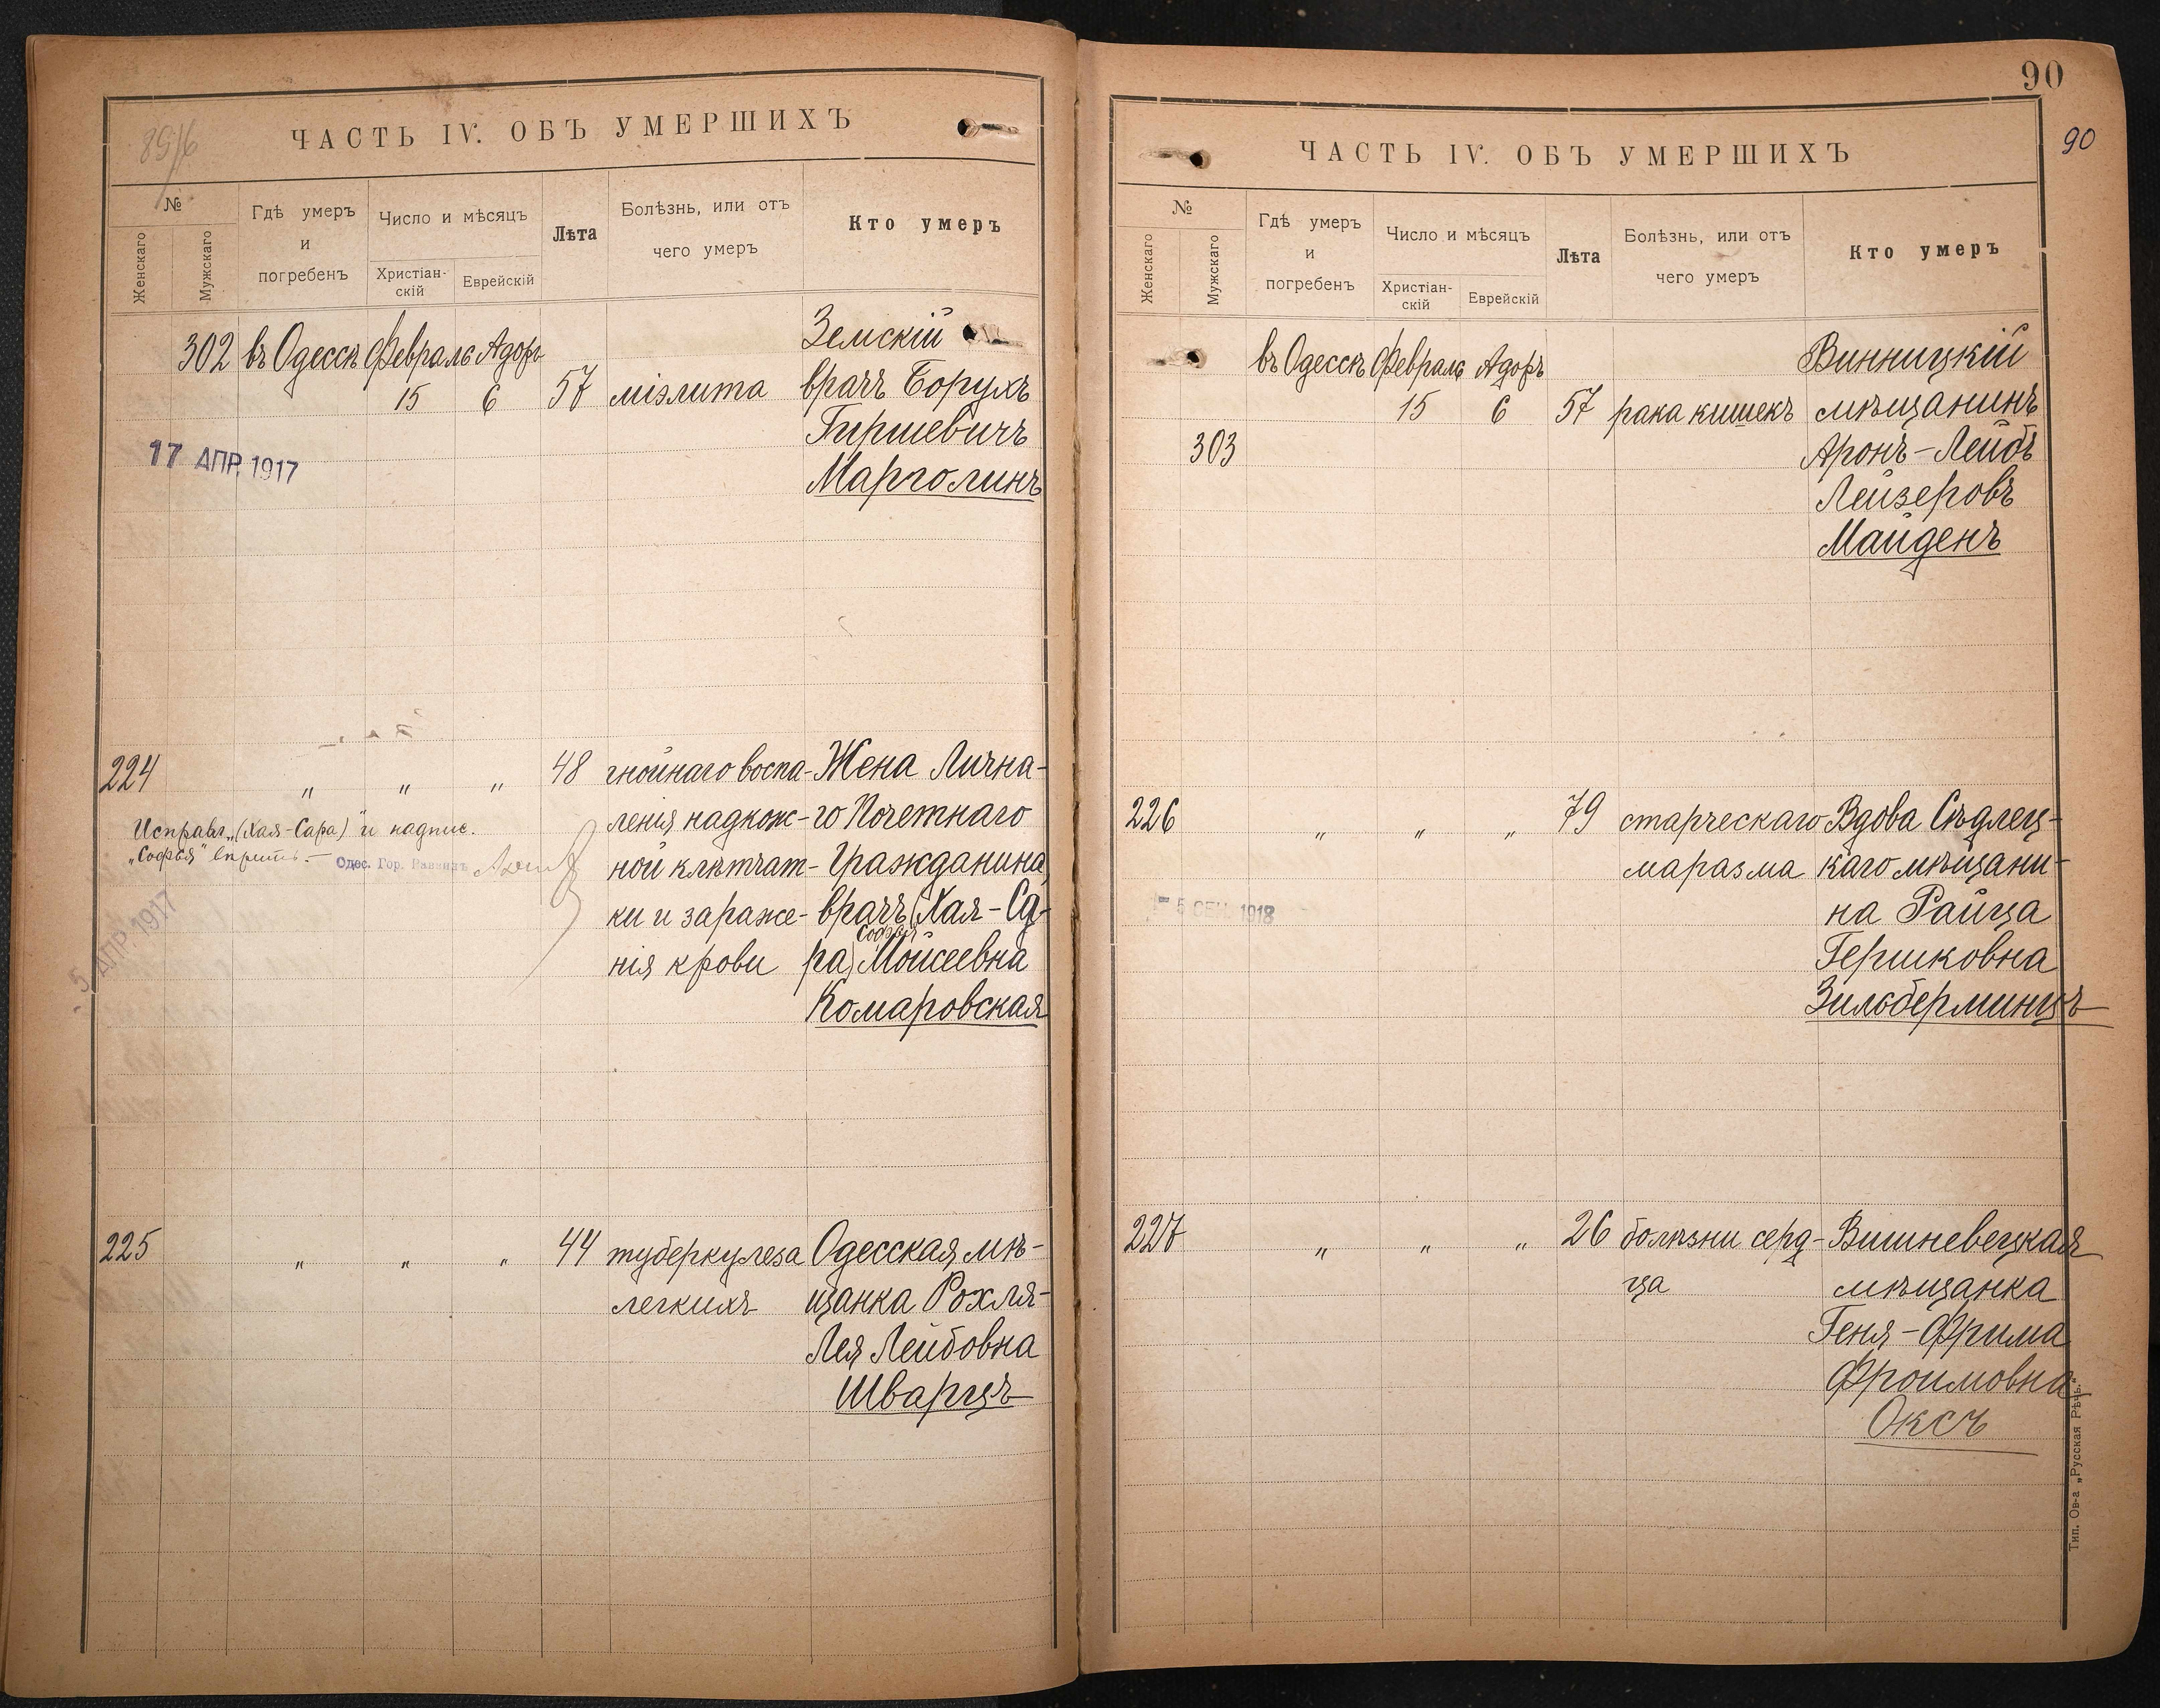 ЧАСТЬ IV. ОБЪ УМЕРШИХЪ
№
Женскаго
Мужскаго
Гдѣ умеръ
и
погребенъ
Число и мѣсяцъ
Христіан-
скій
Еврейскій
Лѣта
Болѣзнь, или отъ
чего умеръ
Кто умеръ
302 въ Одессѣ Февраль Адоръ Земскій
15 6 57 міэлита врачъ Борухъ
Гиршевичъ
Марголинъ
17 АПР. 1917
224 „ „ „ 48 гнойнаго воспа- Жена Лична-
ленія надкож- го Почетнаго
ной клѣтчат- Гражданина,
ки и зараже- врачъ (Хая-Са-
Софья
нія крови ра) Мойсеевна
Комаровская
Исправл. „(Хая-Сара)" и надпис.
„Софья"
Одес. Гор. Раввинъ
5 АПР. 1917
225 „ „ „ 44 туберкулеза Одесская мѣ-
легкихъ щанка Рохля-
Лея Лейбовна
Шварцъ
90
90
ЧАСТЬ IV. ОБЪ УМЕРШИХЪ
№
Женскаго
Мужскаго
Гдѣ умеръ
и
погребенъ
Число и мѣсяцъ
Христіан-
скій
Еврейскій
Лѣта
Болѣзнь, или отъ
чего умеръ
Кто умеръ
въ Одессѣ Февраль Адоръ Винницкій
15 6 57 рака кишекъ мѣщанинъ
303 Аронъ-Лейбъ
Лейзеровъ
Майденъ
226 „ „ „ 79 старческаго Вдова Сѣдлец-
маразма каго мѣщани-
на Райца
Гершковна
Зильберминцъ
5 СЕН. 1918
227 „ „ „ 26 болѣзни серд- Вишневецкая
ца мѣщанка
Геня-Фрима
Фроимовна
Оксъ
Тип. Ов-а „Русская Рѣчь."